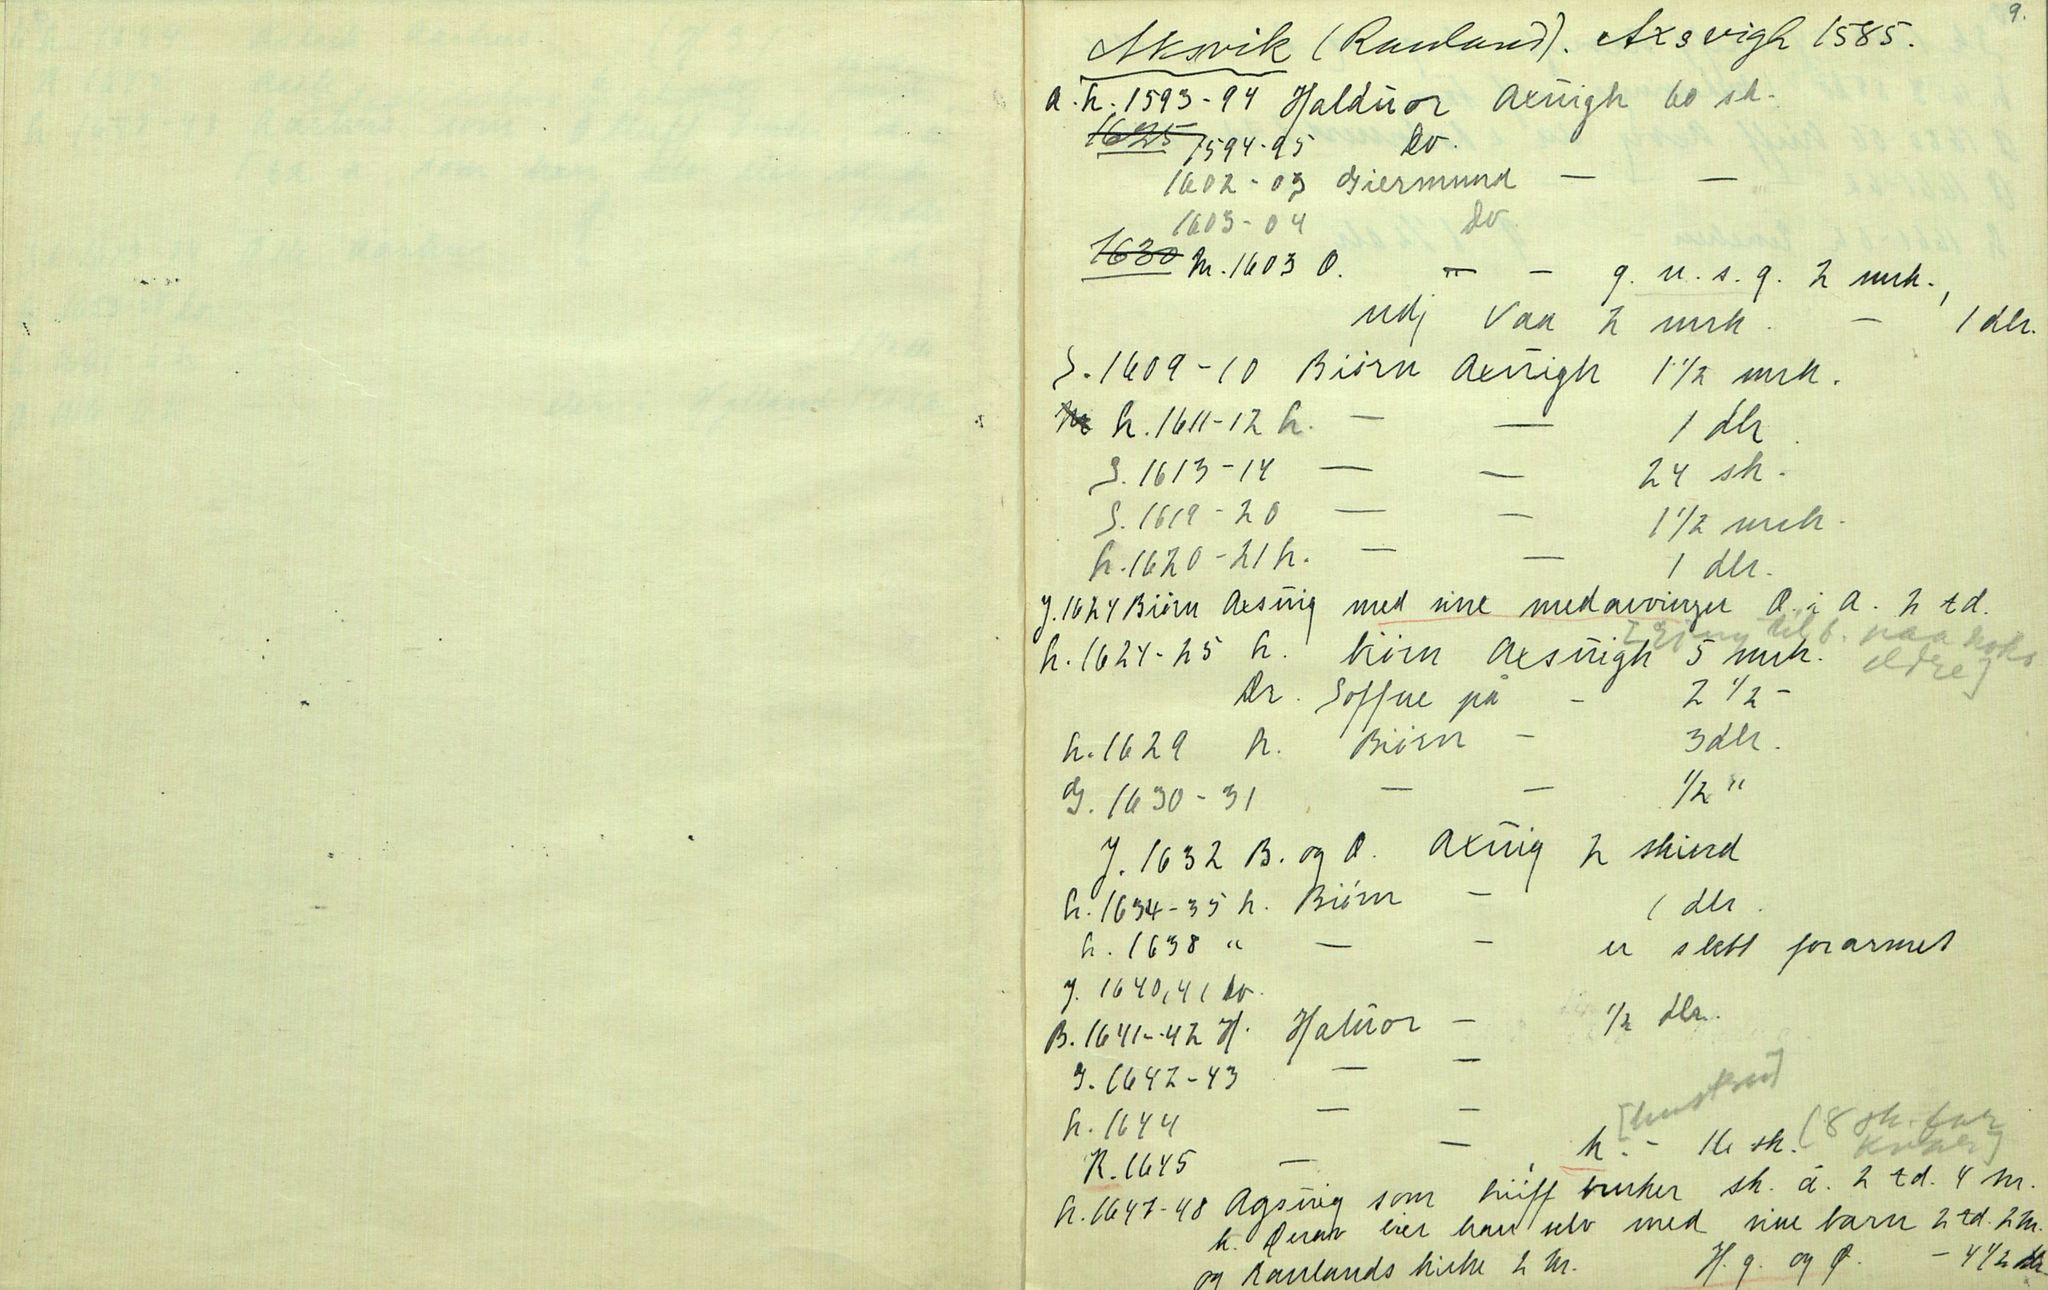 9.
Aksvik (Rauland). Axsvigh 1585.
a. h. 1593-94 Halduor Axuigh 60 sk.
1625 1594-95 Do.
1602-03 Giermund — —
1603-04 Do
1630 M. 1603 O. — — g. u. s. g. 2 mrk.,
udj Vaa 2 mrk. — 1 dlr.
S. 1609-10 Biørn Axuigh 1 1/2 mrk.
h. 1611-12 h. — — 1 dlr.
S. 1613-14 — — 24 sk.
S. 1619-20 — — 1 1/2 mrk.
h. 1620-21 h. — — 1 dlr.
J. 1624 Biørn Axsuig med sine medarvinger O. i A. 2 td.
til b. paa
h. 1624-25 h. biørn Axsuigh 5 mrk.
eldre]
Dr. Soffue på - 2 1/2 -
h. 1629 h. Biørn - 3 dlr.
G. 1630-31 — — 1/2 "
J. 1632 B. og O. Axuig 2 skind
h. 1634-35 h. Biørn - 1 dlr.
h. 1638 " — — er slett forarmet
J. 1640, 41 Do.
B. 1641-42 H. Haluor - 1/2 dlr.
S. 1642-43 — —
h. 1644 — —
[huskud]
K. 1645 — — h. - 16 sk. (8 sk. for
kvar]
h. 1647-48 Agsuig som bruker sk. á. 2 td. 4 sk.
h. Derav eier han selv med sine barn 2 td. 2 sk.
og Raulands kirke 2 sk. H. g. og O. - 4 1/2 dlr.